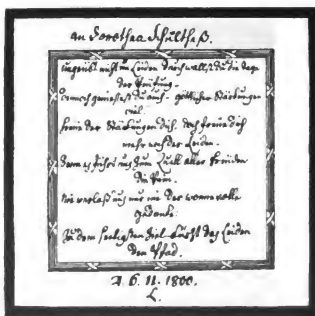 an Dorothea Schultheß.
ungeübt nicht im Leiden durchwallst du die Tage
der Prüfung.
Dennoch genießest du auch göttlicher Stärkungen
viel.
freue der Stärkungen dich, doch freue dich
mehr noch der Leiden.
Denn es führt uns zum Quell aller Freuden
die Pein.
nie verlaß uns nur der wonnevolle
Gedanke:
Zu dem seligsten Ziel führt des Leidens
den Pfad.
6. 11. 1800.
L.